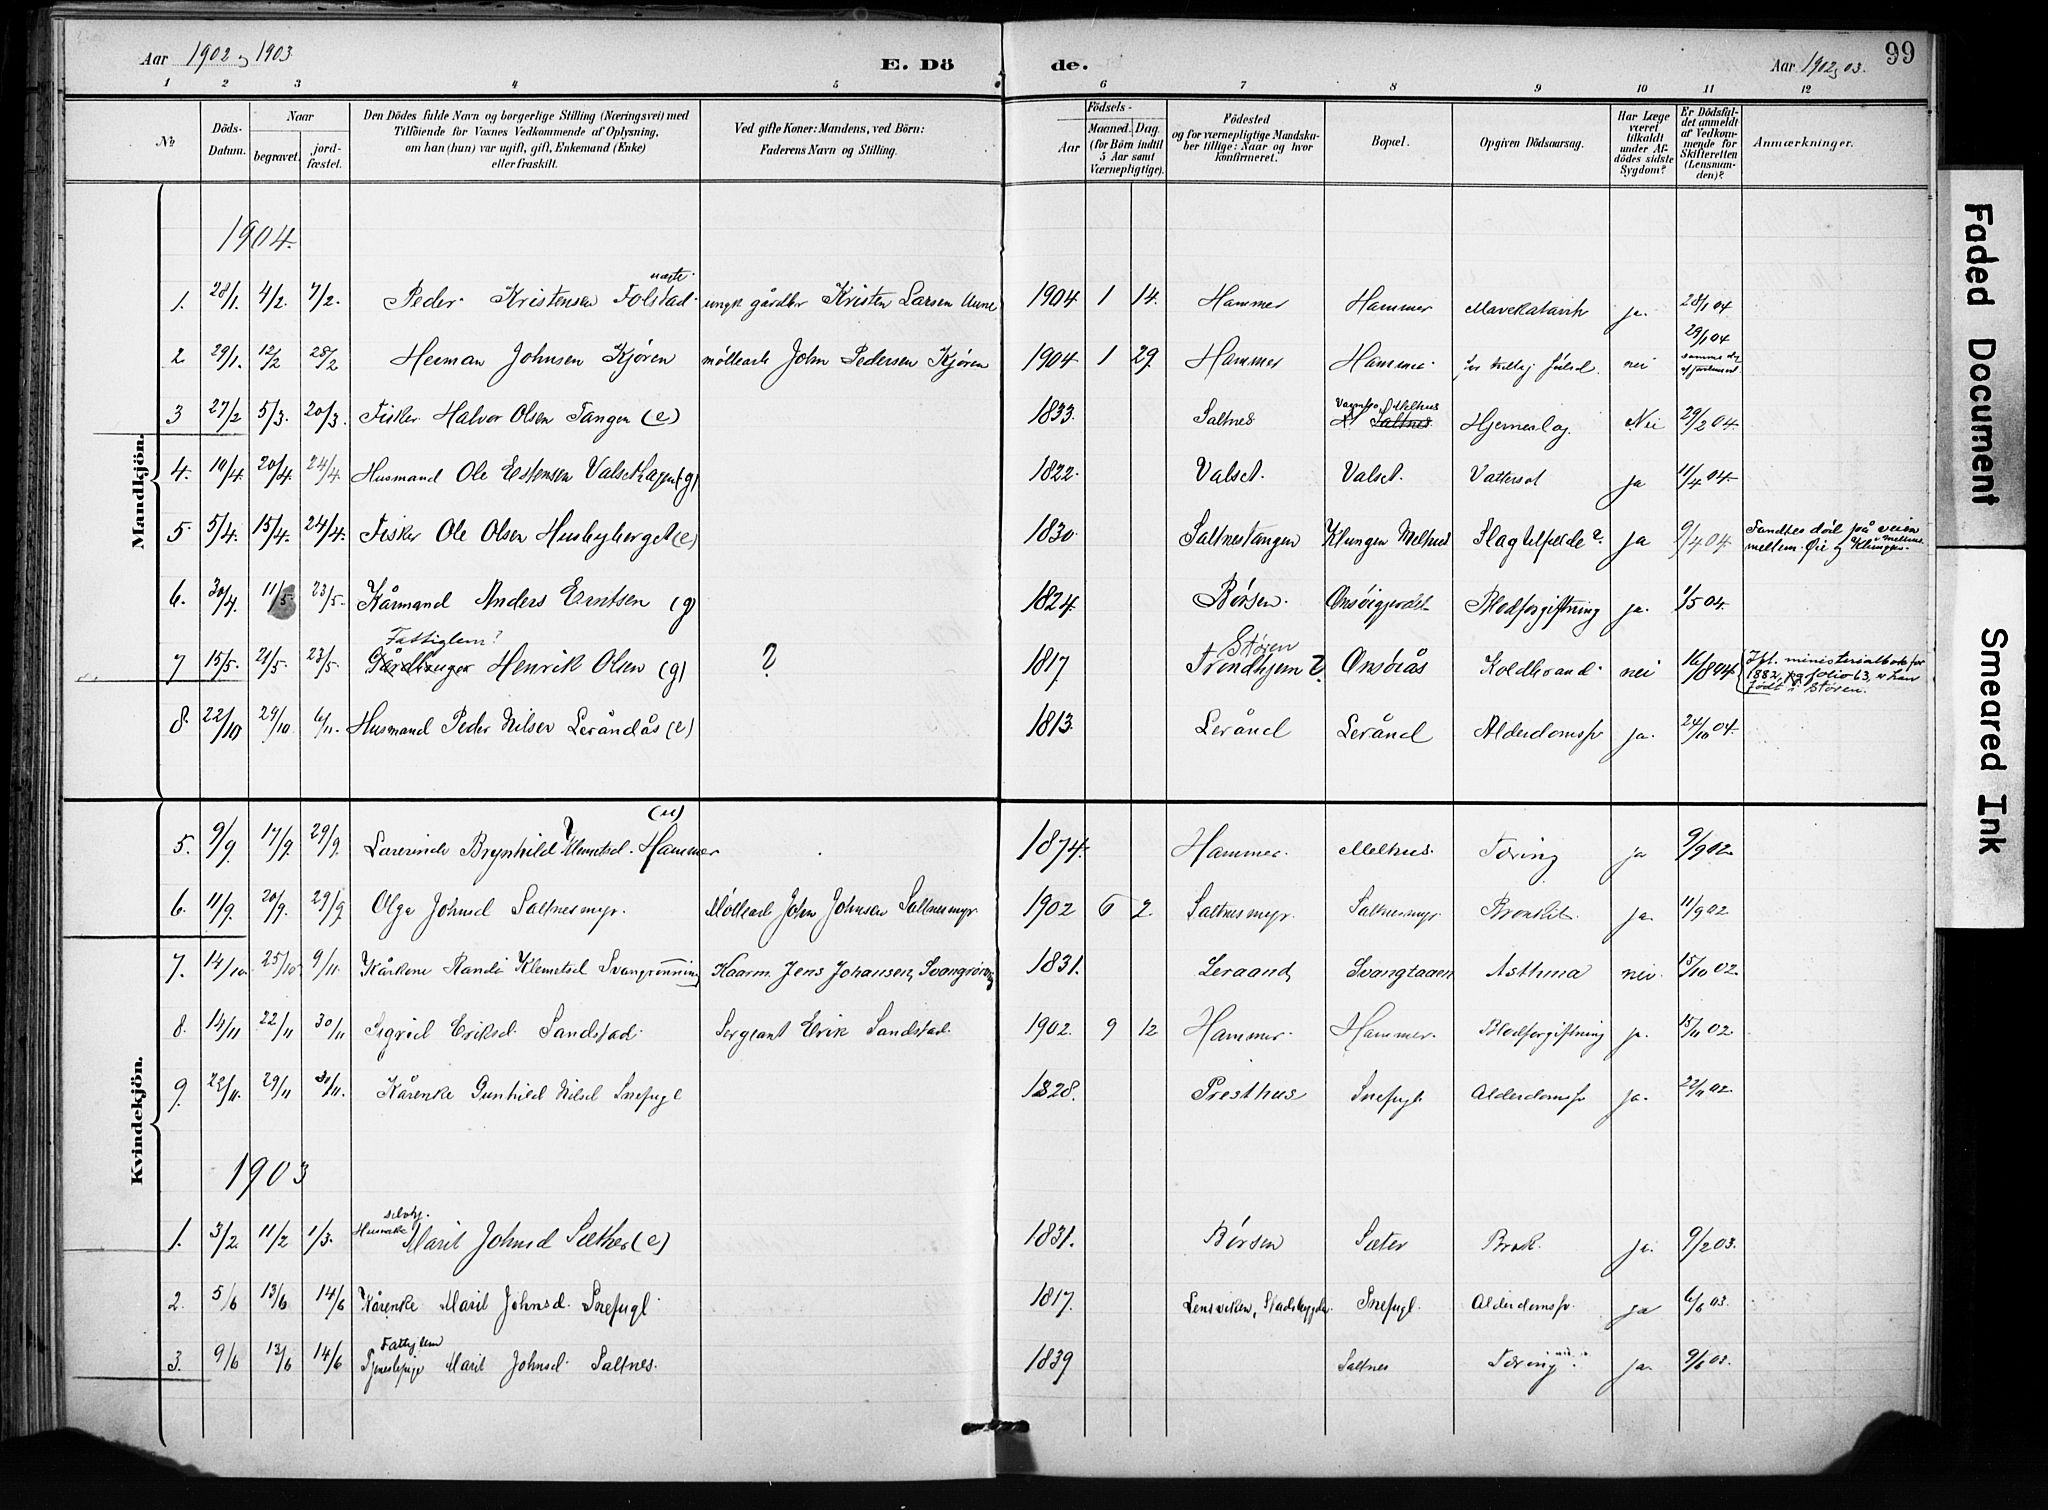 Aar 1902 og 1903
E. Dö de.
Aar 1902, 03.
99
1 2 3 4 5 6 7 8 9 10 11 12
No
Döds-Datum.
Naar
begravet.
jord-fæstet.
Den Dödes fulde Navn og borgerlige Stilling (Næringsvei) med
Tilföiende for Voxnes Vedkommende af Oplysning,
om han (hun) var ugift, gift, Enkemand (Enke)
eller fraskilt.
Ved gifte Koner: Mandens, ved Börn:
Faderens Navn og Stilling.
Födsels-
Aar
Maaned. Dag.
(for Börn indtil
5 Aar samt
Værnepligtige).
Födested
og for værnepligtige Mandska-
ber tillige: Naar og hvor
konfirmeret.
Bopæl.
Opgiven Dödsaarsag.
Har Læge
været
tilkaldt
under Af-
dödes sidste
Sygdom?
Er Dödsfal-
det anmeldt
af Vedkom-
mende for
Skifteretten
(Lensman-
den)?
Anmærkninger.
Mandkjön.
1904.
1. 28/1. 4/2. 7/2. Peder Kristensen Folstad ungk gårdbr Kristen Larsen Aune 1904 1 14. Hammer Hammer Mavekatarrh ja. 28/1 04
2 29/1. 12/2 28/2 Herman Johnsen Kjøren møllearb John Pedersen Kjøren 1904 1 29. Hammer Hammer nei 29/1 04
3 27/2 5/3. 20/3. Fisker Halvor Olsen Tangen (e) 1833. Saltnes Melhus Saltnes Hjerneslag. Nei 29/2 04.
4. 10/4. 20/4. 24/4 Husmand Ole Estensen Valsethagen (g) 1822. Valset. Valset. Vattersot ja 11/4 04.
5. 5/4. 15/4. 24/4. Fisker Ole Olsen Husbyberget (e) 1830 Saltnestangen Klungen Melhus Slagtilfælde? ja 9/4 04. Fandtes död på veien
mellem Øie og Klungen.
6. 30/4. 11/5. 23/5. Kårmand Anders Erntsen (g) 1824 Børsen. Onsöigjerdet Blodforgiftning ja. 1/5 04.
Fattiglem? Støren
7 15/5. 21/5 23/5 Gårdbruger Henrik Olsen (g) ? 1817 Trondhjem? Onsøiås Koldbrand nei 16/8 04 Ifl. ministerialbok for
1882, pg folio 63, er han
født i Støren.
8. 22/10 29/10 6/11. Husmand Peder Nilsen Leråndås (e) 1813. Leränd Leränd Alderdomssv ja. 24/10 04.
Kvindekjön.
(u)
5. 9/9. 17/9. 29/9. Lærerinde Brynhild Klemetsd. Hammer 1874. Hammer. Melhus. Tæring ja 9/9 02.
6. 11/9. 20/9. 29/9 Olga Johnsd Saltnesmyr. Møllearb John Johnsen Saltnesmyr 1902 6 2. Saltnesmyr. Saltnesmyr Bronkit. ja. 11/9 02
7. 14/10. 25/10 9/11. Kårkone Randi Klemetsd Svangrønning Kaarm. Jens Johansen, Svangrønning 1831. Leraand Svangtaaen Asthma nei. 15/10 02.
8. 14/11 22/11 30/11 Sigrid Eriksd. Sandstad Sergeant Erik Sandstad 1902. 9 12 Hammer Hammer. Blodforgiftning ja. 15/11 02
9. 22/11. 29/11 30/11. Kårenke Gunhild Nilsd Snefugl 1828. Presthus Snefugl Alderdomssv ja. 22/11 02.
1903
selvej.
1. 3/2. 11/2 1/3. Marit Johnsd Sæther (e) 1831. Børsen Sæter Brok. ja. 9/2 03.
2. 5/6 13/6 14/6 Kårenke Marit Johnsd. Snefugl 1817. Lensviken, Stadsbygden Snefugl. Alderdomssv. ja 6/6 03.
3. 9/6 13/6 14/6 Tjenestepige Marit Johnsd. Saltnes. 1839 Saltnes Tæring ja. 9/6 03.
Faded Document
Smeared Ink